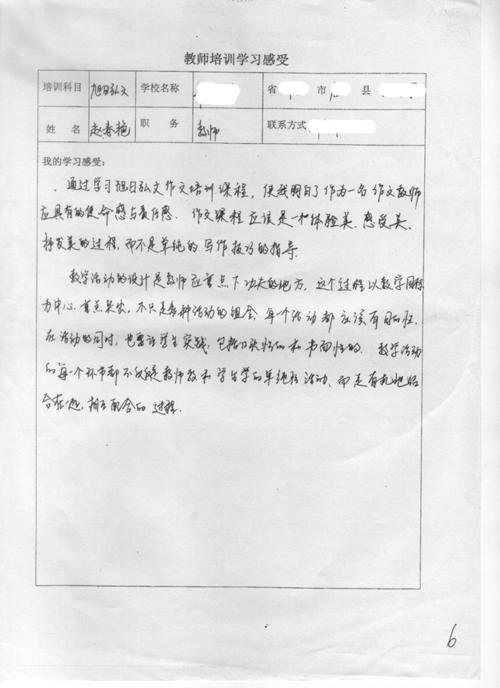 教师培训学习感受
培训科目 旭日弘文 学校名称 省 市 县
姓 名 赵春艳 职 务 教师 联系方式
我的学习感受:
通过学习旭日弘文作文培训课程,使我明白了作为一名作文教师
应具有的使命感与责任感。作文课程应该是个体验美、感受美、
抒发美的过程,而不是单纯的写作技巧的指导。
教学活动的设计是教师应重点下功夫的地方,这个过程以教学目标
为中心,重点突出,不只是各种活动的组合,每个活动都应该有目的性,
在活动的同时,也要让学生实践,包括口头性的和书面性的。教学活动
的每个环节都不仅是教师教和学生学的单纯性活动,而是有机地结
合在一起,相互配合的过程。
6